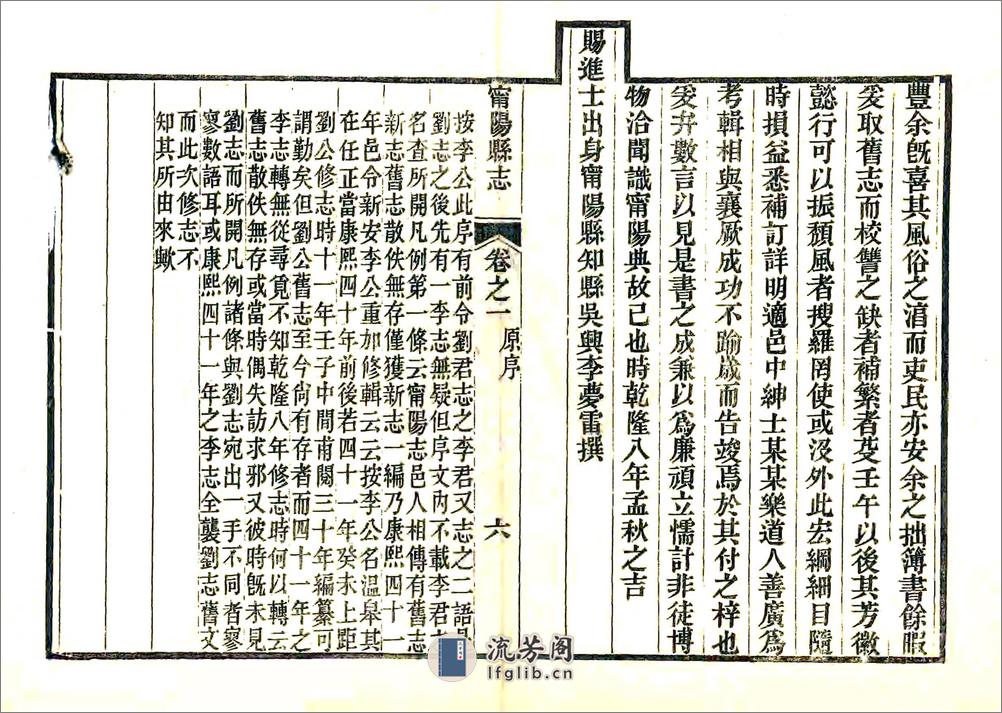 豐余旣喜其風俗之淯而吏民亦安余之拙簿書餘暇
爰取舊志而校讐之缺者補繁者芟壬午以後其芳徽
懿行可以振頹風者搜羅罔使或沒外此宏綱細目隨
時損益悉補訂詳明適邑中紳士某某樂道人善廣爲
考輯相與襄厥成功不踰歲而告竣焉於其付之梓也
爰弁數言以見是書之成兼以爲廉頑立懦計非徒博
物洽聞識甯陽典故已也時乾隆八年孟秋之吉
賜進士出身甯陽縣知縣吳興李夢雷撰
甯陽縣志
卷之一
原序
六
按李公此序有前令劉君志之李君又志之二語是
劉志之後先有一李志無疑但序文內不載李君之
名查所開凡例第一條云甯陽志邑人相傳有舊志
新志舊志散佚無存僅獲新志一編乃康熙四十一
年邑令新安李公重加修輯云云按李公名温皋其
在任正當康熙四十年前後若四十一年癸未上距
劉公修志時十一年壬子中間甫閱三十年編纂可
謂勤矣但劉公舊志至今尙有存者而四十一年之
李志轉無從尋覓不知乾隆八年修志時何以轉云
舊志散佚無存或當時偶失訪求邪又彼時旣未見
劉志而所開凡例諸條與劉志宛出一手不同者寥
寥數語耳或康熙四十一年之李志全襲劉志舊文
而此次修志不
知其所由來歟
流芳阁
lfglib.cn